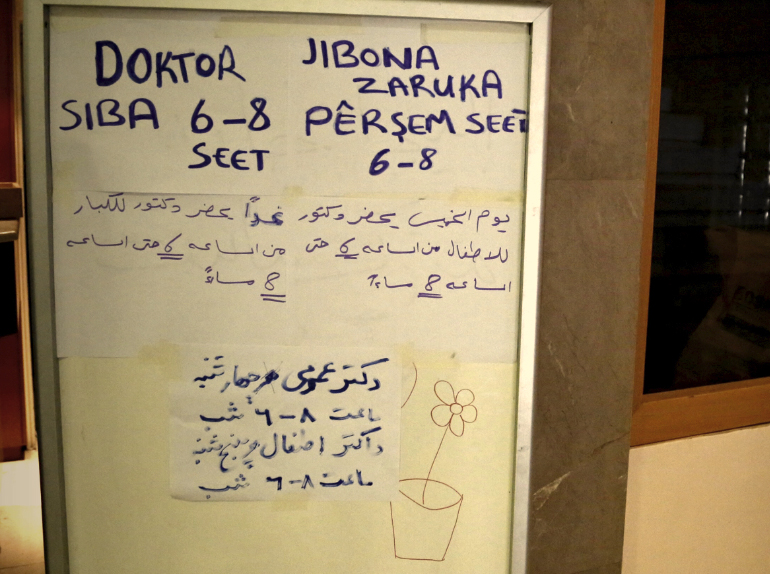 DOKTOR
SIBA 6-8
SEET
JIBONA
ZARUKA
PÊRŞEM SEET
6-8
يوم الخميس يحضر دكتور
للاطفال من الساعه 6 حتى
الساعه 8 مساءً
غداً يحضر دكتور للكبار
من الساعه 6 حتى الساعه
8 مساءً
دکتر عمومی چهارشنبه
ساعت ٨-٦ شب
داکتر اطفال پنج شنبه
ساعت ٨-٦ شب